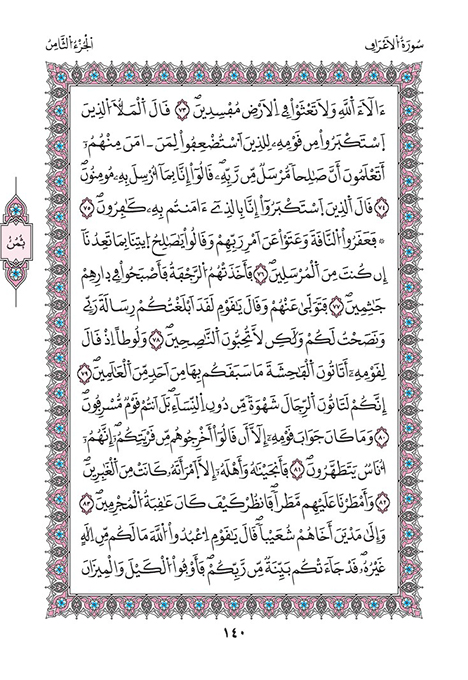 سُورَةُ الَاعْرَافِ
الْجُزْءُ الثَّامِنُ
ءَالَآءَ اَللَّهِ وَلَا تَعْثَوْاْ فِے اِلَارْضِ مُفْسِدِينَۖ ٧٣ قَالَ اَلْمَلَأُ اُلذِينَ
اَسْتَكْبَرُواْ مِن قَوْمِهِۦ لِلذِينَ اَسْتُضْعِفُواْ لِمَنَ اٰمَنَ مِنْهُمُۥٓ
أَتَعْلَمُونَ أَنَّ صَٰلِحاٗ مُّرْسَلٞ مِّن رَّبِّهِۦۖ قَالُوٓاْ إِنَّا بِمَآ أُرْسِلَ بِهِۦ مُومِنُونَۖ
٧٤ قَالَ اَلذِينَ اَسْتَكْبَرُوٓاْ إِنَّا بِالذِےٓ ءَامَنتُم بِهِۦ كَٰفِرُونَۖ ٧٥
* فَعَقَرُواْ اُلنَّاقَةَ وَعَتَوْاْ عَنَ اَمْرِ رَبِّهِمْ وَقَالُواْ يَٰصَٰلِحُ اُيتِنَا بِمَا تَعِدُنَآ
إِن كُنتَ مِنَ اَلْمُرْسَلِينَۖ ٧٦ فَأَخَذَتْهُمُ اُلرَّجْفَةُ فَأَصْبَحُواْ فِے دِارِهِمْ
جَٰثِمِينَۖ ٧٧ فَتَوَلَّىٰ عَنْهُمْ وَقَالَ يَٰقَوْمِ لَقَدَ اَبْلَغْتُكُمْ رِسَالَةَ رَبِّے
وَنَصَحْتُ لَكُمْ وَلَٰكِن لَّا تُحِبُّونَ اَلنَّٰصِحِينَۖ ٧٨ وَلُوطاً اِذْ قَالَ
لِقَوْمِهِۦٓ أَتَاتُونَ اَلْفَٰحِشَةَ مَا سَبَقَكُم بِهَا مِنَ اَحَدٖ مِّنَ اَلْعَٰلَمِينَۖ ٧٩
إِنَّكُمْ لَتَاتُونَ اَلرِّجَالَ شَهْوَةٗ مِّن دُونِ اِلنِّسَآءِۖ بَلَ اَنتُمْ قَوْمٞ مُّسْرِفُونَۖ
٨٠ وَمَا كَانَ جَوَابَ قَوْمِهِۦٓ إِلَّآ أَن قَالُوٓاْ أَخْرِجُوهُم مِّن قَرْيَتِكُمُۥٓۖ إِنَّهُمُۥٓ
أُنَاسٞ يَتَطَهَّرُونَۖ ٨١ فَأَنجَيْنَٰهُ وَأَهْلَهُۥٓ إِلَّا اَمْرَأَتَهُۥ كَانَتْ مِنَ اَلْغَٰبِرِينَۖ
٨٢ وَأَمْطَرْنَا عَلَيْهِم مَّطَراٗۖ فَانظُرْ كَيْفَ كَانَ عَٰقِبَةُ اُلْمُجْرِمِينَۖ ٨٣
وَإِلَىٰ مَدْيَنَ أَخَاهُمْ شُعَيْباٗۖ قَالَ يَٰقَوْمِ اِعْبُدُواْ اُللَّهَ مَا لَكُم مِّنِ اِلَٰهٍ
غَيْرُهُۥۖ قَدْ جَآءَتْكُم بَيِّنَةٞ مِّن رَّبِّكُمْۖ فَأَوْفُواْ اُلْكَيْلَ وَالْمِيزَانَ
ثُمُنُ
١٤٠